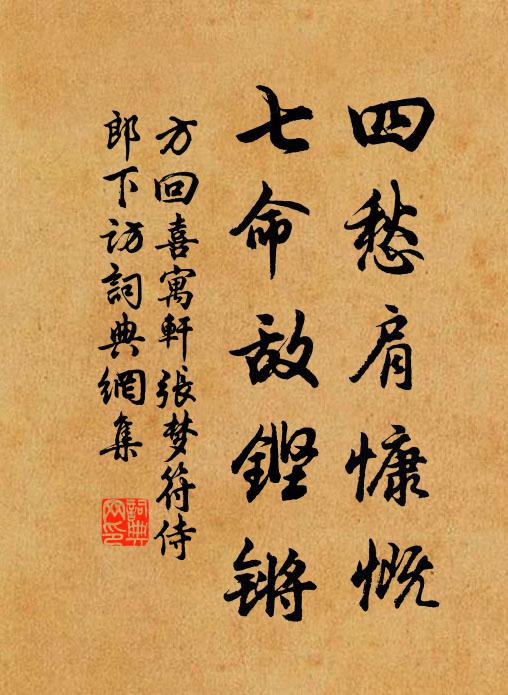 四愁肩慷慨
七命敌鏗锵
方回喜寓軒張梦符侍
郎下访詞典網集
詞典
网印